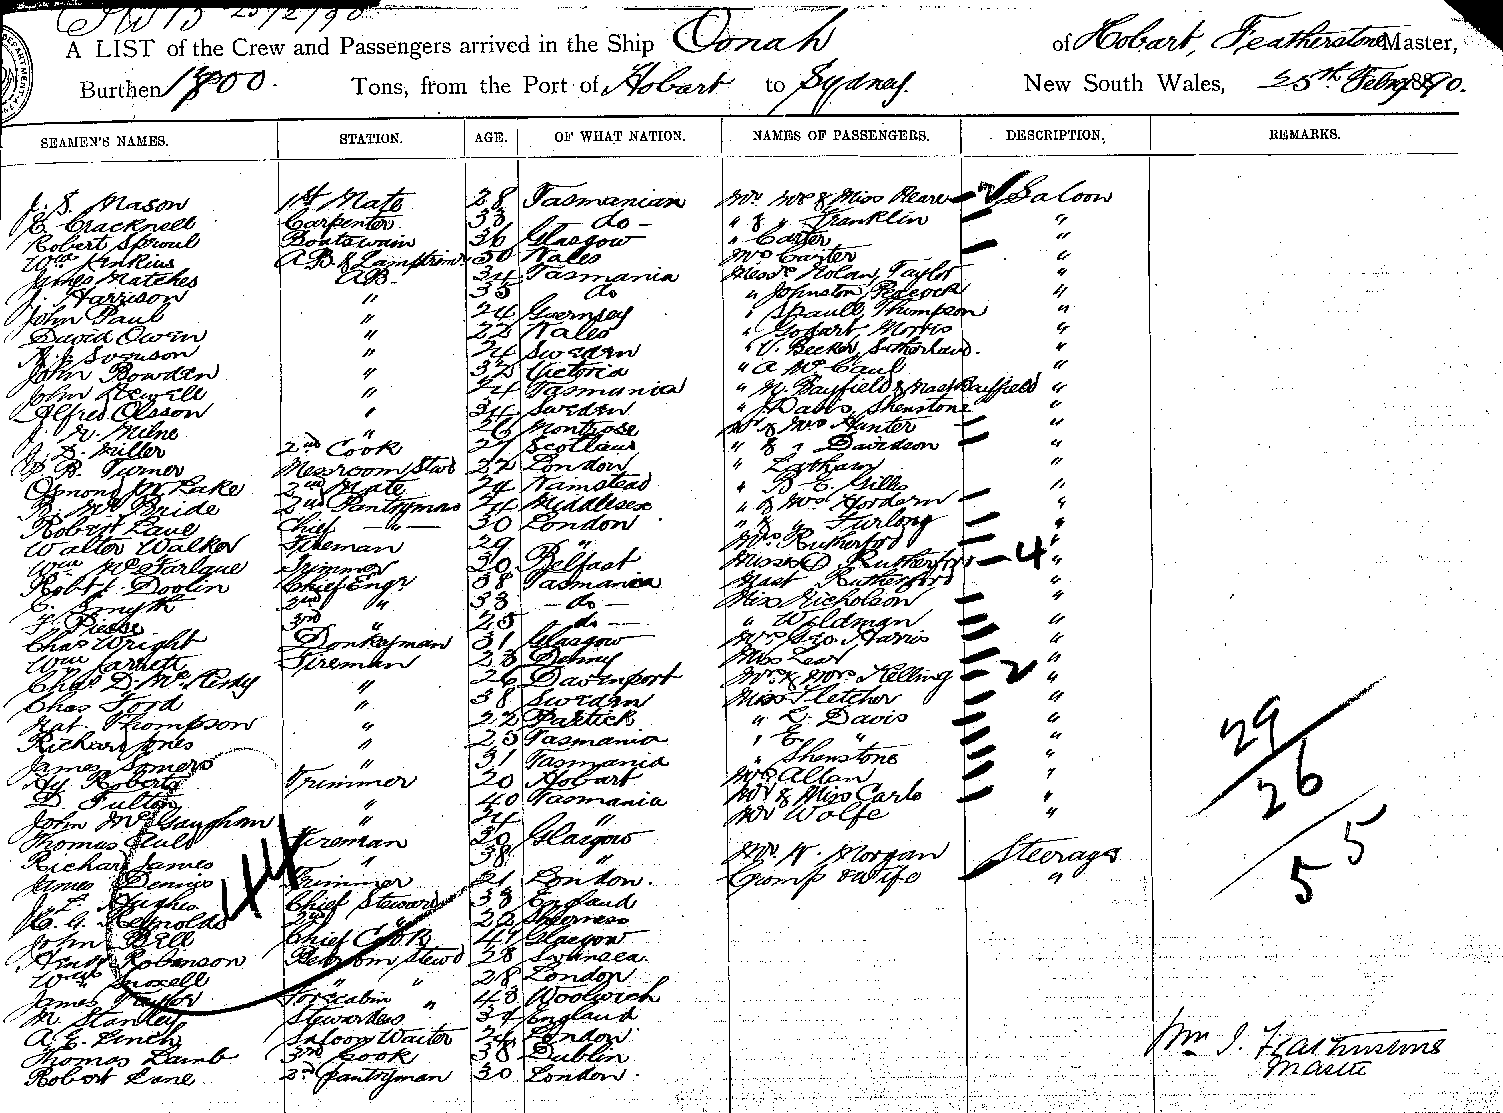 25/2/90
A LIST of the Crew and Passengers arrived in the Ship Oonah of Hobart, Featherstone Master,
Burthen 1800 Tons, from the Port of Hobart to Sydney New South Wales, 25th Feby 1890.
SEAMEN'S NAMES. STATION. AGE. OF WHAT NATION. NAMES OF PASSENGERS. DESCRIPTION. REMARKS.
J. S. Mason 1st Mate 28 Tasmanian Mr Mrs & Miss Saloon
E. Cracknell Carpenter 33 -do- " & " Franklin "
Robert Sproul Boatswain 36 Glasgow " Carter "
Wm Jenkins A.B. & 30 Wales Mrs Carter "
James Matches A.B. 34 Tasmania Messrs Nolan, Taylor "
J. Harrison " 35 do " Johnston, Peacock "
John Paul " 24 Guernsey " Thompson "
David Owen " 22 Wales " Morris "
Svenson " 24 Sweden " V. Becker, Sutherland. "
John Bowden " 32 Victoria " A McCaul "
John " 24 Tasmania " M. Bayfield & Mast Bayfield "
Alfred Olsson " 34 Sweden " Davis, Shenstone "
J. Milne " 26 Montrose Mr & Mrs Hunter "
J. D. 2nd Cook 27 Scotland " & " Davidson "
Turner Messroom Stwd 22 London " Latham "
Osmond M. Lake 2nd Mate 29 " B. E. Gills "
R. McBride 2nd Pantryman 24 Middlesex " & Mrs Hordern "
Robert Chief - " - 30 London " & " Furlong "
Walter Walker Fireman 29 " Mrs Rutherford "
Wm McFarlane Trimmer 30 Belfast Rutherford 4 "
Robt J. Doolin Chief Engr 38 Tasmania Mast Rutherford "
C. Smyth 2nd " 33 -do- Miss Nicholson "
3rd " 25 do- " Wildman "
Chas Wright Donkeyman 31 Glasgow Mrs Geo. Harris "
Wm Garnett Fireman 23 Miss Lear "
Chas D. " 26 Davenport Mr & Mrs Kelling 2 "
Chas Ford " 38 Sweden Miss Fletcher "
Nat. Thompson " 22 Partick " L. Davis "
Richard Jones " 25 Tasmania " E. " "
James Somers " 31 Tasmania " Shenstone "
Hy. Roberts Trimmer 20 Hobart Mrs Allan "
D. Fulton " 40 Tasmania Mr & Miss Carlo "
John McGaughan " 24 " Mr Wolfe "
Thomas Fireman 30 Glasgow
Richard James " 38 " Mr W. Morgan Steerage
James Dennis Trimmer 21 London. & wife "
Hughes Chief Steward 33 England
Reynolds 2nd " 22 Sheerness
John Bell Chief Cook 47 Glasgow
Robinson Bedroom Stewd 28 Swansea.
Wm Snoxell " " 28 London
James Taylor Forecabin " 43 Woolwich
M. Stanley Stewardess 34 England
A. E. Linch Saloon Waiter 24 London
Thomas Lamb 3rd Cook 38 Dublin
Robert Lane 2nd pantryman 30 London.
44
29
26
55
Wm J. Featherstone
Master